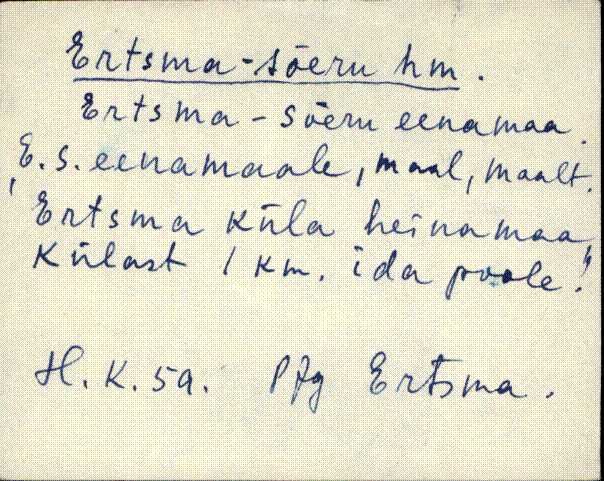 Ertsma-sõeru hm.
Ertsma-sõeru eenamaa.
E.s. eenamaale, maal, maalt.
„Ertsma küla heinamaa,
külast 1 km. ida poole."
H.K.59. Pfg Ertsma.